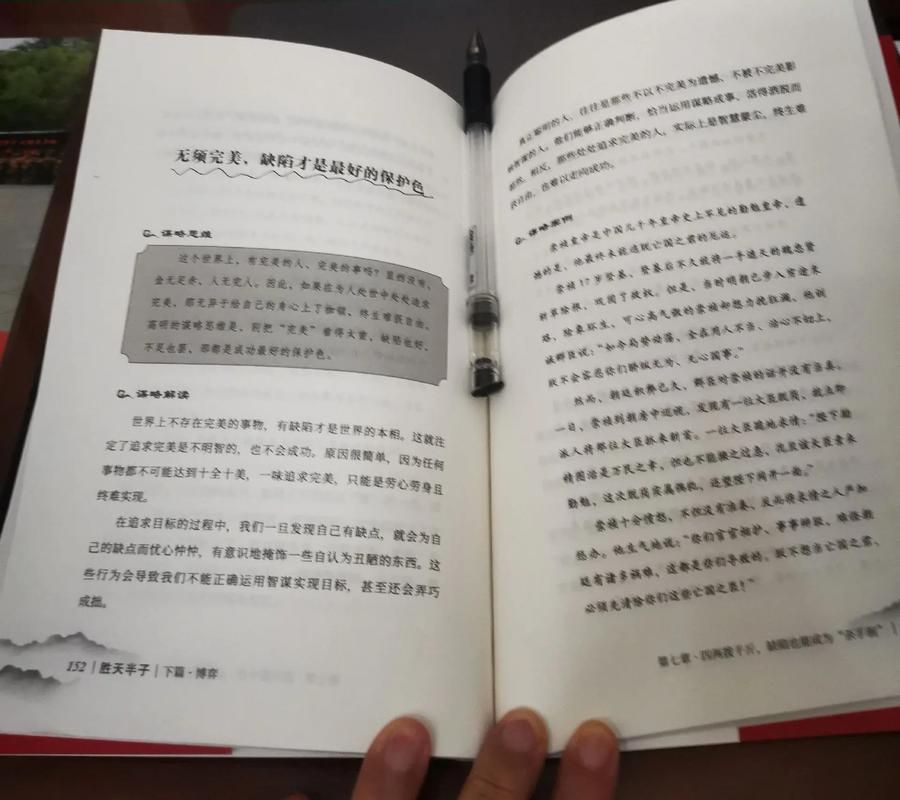 无须完美，缺陷才是最好的保护色
谋略思维
这个世界上，有完美的人、完美的事吗？显然没有，
金无足赤，人无完人。因此，如果在为人处世中处处追求
完美，那无异于给自己的身心上了枷锁，终生难获自由。
高明的谋略思维是，别把“完美”看得太重，缺陷也好，
不足也罢，那都是成功最好的保护色。
谋略解读
世界上不存在完美的事物，有缺陷才是世界的本相。这就注
定了追求完美是不明智的，也不会成功。原因很简单，因为任何
事物都不可能达到十全十美，一味追求完美，只能是劳心劳身且
终难实现。
在追求目标的过程中，我们一旦发现自己有缺点，就会为自
己的缺点而忧心忡忡，有意识地掩饰一些自认为丑陋的东西。这
些行为会导致我们不能正确运用智谋实现目标，甚至还会弄巧
成拙。
152 | 胜天半子 | 下篇·博弈
真正聪明的人，往往是那些不以不完美为遗憾、不被不完美影
响智谋的人，他们能够正确判断，恰当运用谋略成事，活得洒脱而
超然。相反，那些处处追求完美的人，实际上是智慧蒙尘，终生难
获自由，也难以走向成功。
谋略案例
崇祯皇帝是中国几千年皇帝史上罕见的勤勉皇帝，遗
憾的是，他最终未能逃脱亡国之君的厄运。
崇祯 17 岁登基，登基后不久就将一手遮天的魏忠贤
斩草除根，巩固了政权。但是，当时明朝已步入穷途末
路，险象环生，可心高气傲的崇祯却想力挽狂澜，他训
诫群臣说：“如今局势动荡，全在用人不当、治心不切上，
朕不会容忍你们骄纵无为、无心国事。”
然而，朝廷积弊已久，群臣对崇祯的话并没有当真。
一日，崇祯到朝房中巡视，发现有一位大臣脱岗，故立即
派人将那位大臣抓来斩首。一位大臣跪地求情：“陛下勤
精图治是万民之幸，但也不能操之过急，况且该大臣素来
勤勉，这次脱岗实属偶犯，还望陛下网开一面。”
崇祯十分愤怒，不但没有准奏，反而将求情之人严加
惩办。他生气地说：“你们官官相护，事事骄纵，
廷有诸多祸难，这都是你们导致的。朕不想当亡国之君，
必须先清除你们这些亡国之臣！”
第七章·四两拨千斤，缺陷也能成为“杀手锏” |